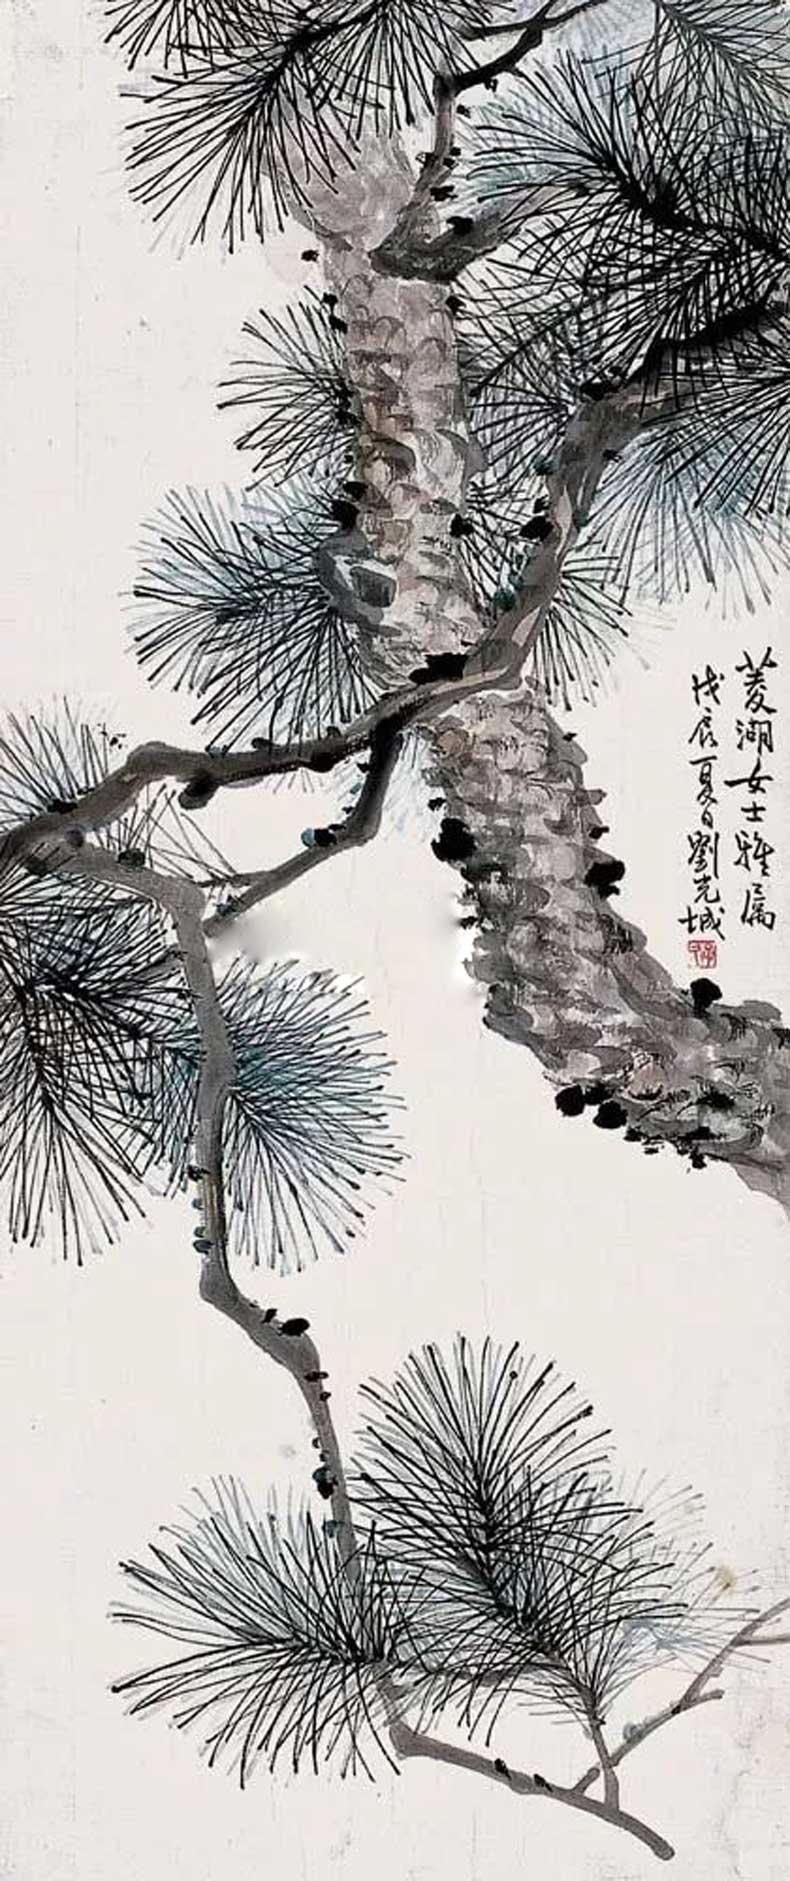 菱湖女士雅属
戊辰夏日劉光城